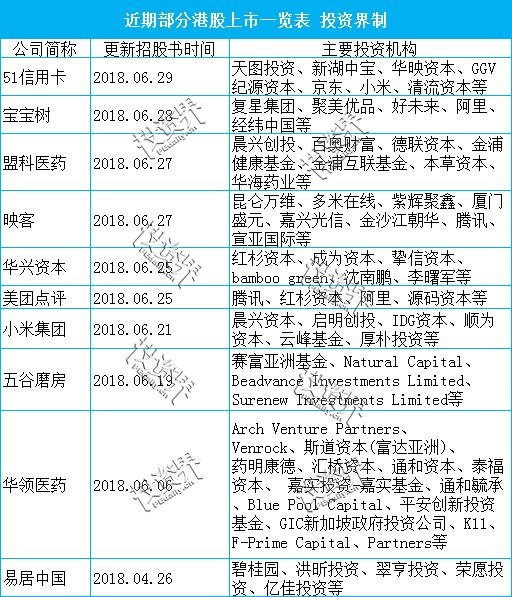 近期部分港股上市一览表 投资界制
公司简称 更新招股书时间 主要投资机构
51信用卡 2018.06.29 天图投资、新湖中宝、华映资本、GGV
纪源资本、京东、小米、清流资本等
宝宝树 2018.06.28 复星集团、聚美优品、好未来、阿里、
经纬中国等
盟科医药 2018.06.27 晨兴创投、百奥财富、德联资本、金浦
健康基金、金浦互联基金、本草资本、
华海药业等
映客 2018.06.27 昆仑万维、多米在线、紫辉聚鑫、厦门
盛元、嘉兴光信、金沙江朝华、腾讯、
宣亚国际等
华兴资本 2018.06.25 红杉资本、成为资本、挚信资本、
bamboo green、沈南鹏、李曙军等
美团点评 2018.06.25 腾讯、红杉资本、阿里、源码资本等
小米集团 2018.06.21 晨兴资本、启明创投、IDG资本、顺为
资本、云峰基金、厚朴投资等
五谷磨房 2018.06.19 赛富亚洲基金、Natural Capital、
Beadvance Investments Limited、
Surenew Investments Limited等
华领医药 2018.06.06 Arch Venture Partners、
Venrock、斯道资本(富达亚洲)、
药明康德、汇桥资本、通和资本、泰福
资本、 嘉实投资-嘉实基金、通和毓承
、Blue Pool Capital、平安创新投资
基金、GIC新加坡政府投资公司、K11、
F-Prime Capital、Partners等
易居中国 2018.04.26 碧桂园、洪昕投资、翠亨投资、荣愿投
资、亿佳投资等